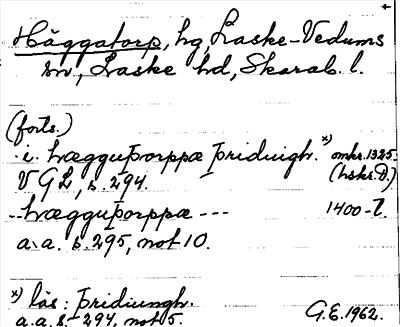 Häggatorp, hg, Laske-Vedums
sn, Laske hd, Skarab. l.
(forts.)
.i. hægguþorppæ þriduigh. x) omkr. 1325.
VGL, s. 294. (hskr. D.)
--hægguþorppæ --- 1400-t.
a.a. s. 295, not 10.
x) läs: þridiungh.
a.a. s. 294, not 5. G.E. 1962.